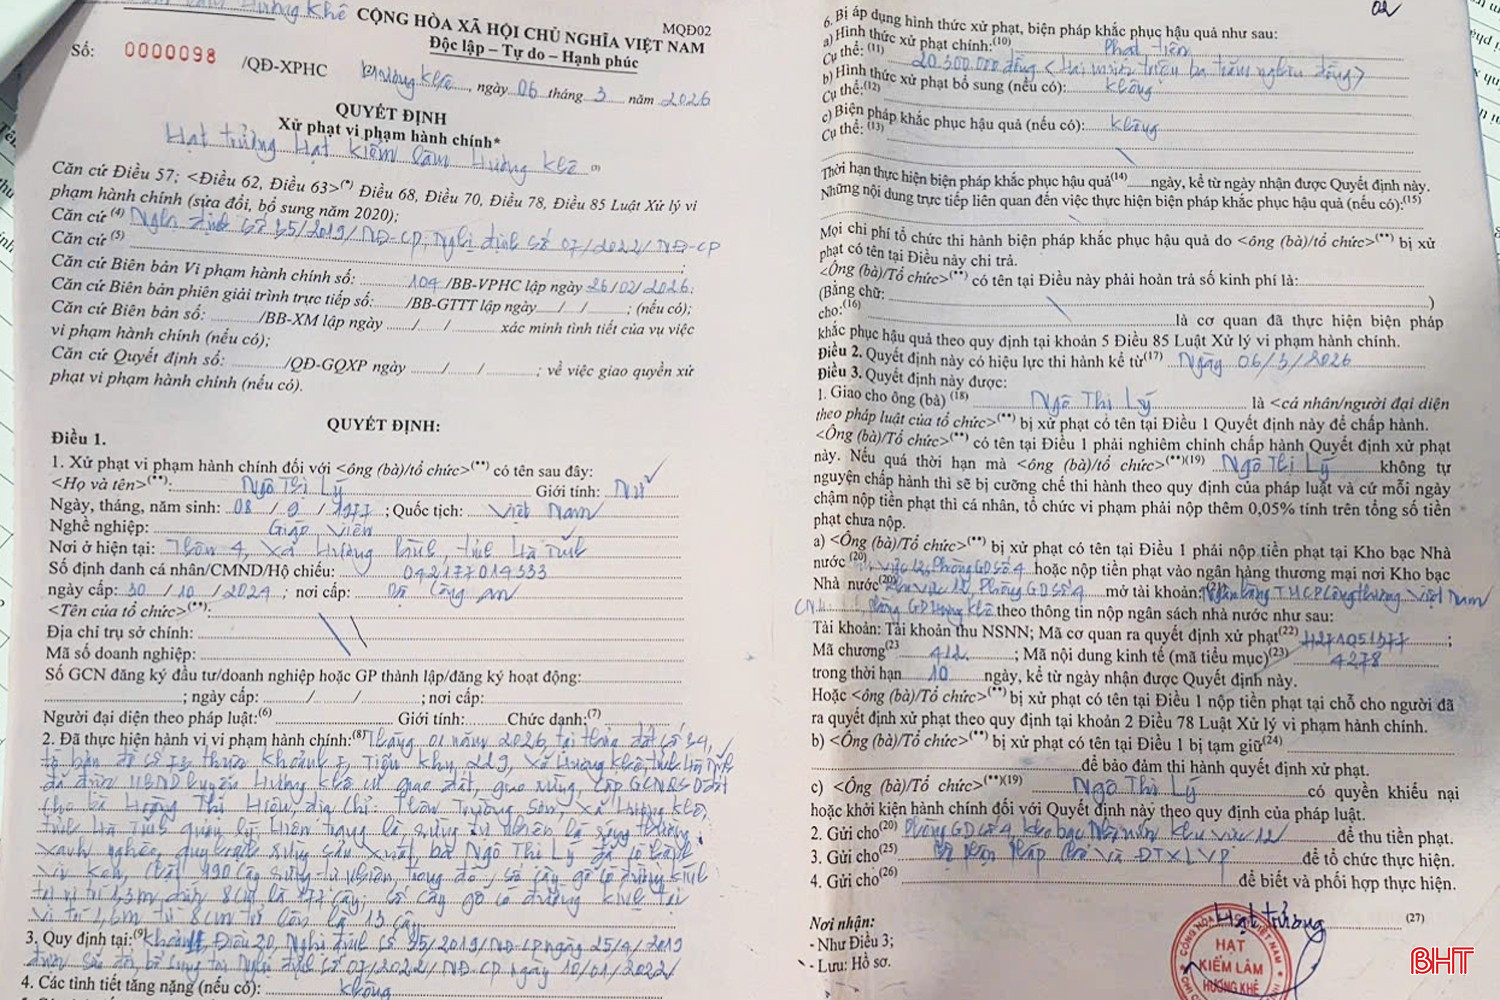 Hương Khê
CỘNG HÒA XÃ HỘI CHỦ NGHĨA VIỆT NAM
MQĐ02
Độc lập – Tự do – Hạnh phúc
Số: 0000098 /QĐ-XPHC
Hương Khê, ngày 06 tháng 3 năm 2026
QUYẾT ĐỊNH
Xử phạt vi phạm hành chính*
Hạt trưởng Hạt kiểm lâm Hương Khê
Căn cứ Điều 57; <Điều 62, Điều 63>(*) Điều 68, Điều 70, Điều 78, Điều 85 Luật Xử lý vi
phạm hành chính (sửa đổi, bổ sung năm 2020);
Căn cứ (4) Nghị định số 35/2019/NĐ-CP, Nghị định số 07/2022/NĐ-CP
Căn cứ (5) ;
Căn cứ Biên bản Vi phạm hành chính số: 104 /BB-VPHC lập ngày 26/02/2026;
Căn cứ Biên bản phiên giải trình trực tiếp số: /BB-GTTT lập ngày / / ; (nếu có);
Căn cứ Biên bản số: /BB-XM lập ngày / / xác minh tình tiết của vụ việc
vi phạm hành chính (nếu có);
Căn cứ Quyết định số: /QĐ-GQXP ngày / / ; về việc giao quyền xử
phạt vi phạm hành chính (nếu có).
QUYẾT ĐỊNH:
Điều 1.
1. Xử phạt vi phạm hành chính đối với <ông (bà)/tổ chức>(**) có tên sau đây:
<Họ và tên>(**): Ngô Thị Lý Giới tính: Nữ
Ngày, tháng, năm sinh: 08 / 9 / 1977 ; Quốc tịch: Việt Nam
Nghề nghiệp: Giáo viên
Nơi ở hiện tại: Thôn 4, xã Hương Bình, tỉnh Hà Tĩnh
Số định danh cá nhân/CMND/Hộ chiếu: 042177014333
ngày cấp: 30 / 10 / 2024 ; nơi cấp: Bộ Công an
<Tên của tổ chức>(**):
Địa chỉ trụ sở chính:
Mã số doanh nghiệp:
Số GCN đăng ký đầu tư/doanh nghiệp hoặc GP thành lập/đăng ký hoạt động:
; ngày cấp: / / ; nơi cấp:
Người đại diện theo pháp luật:(6) Giới tính: Chức danh:(7)
2. Đã thực hiện hành vi vi phạm hành chính:(8) Tháng 01 năm 2026, tại thửa đất số 34,
tờ bản đồ số 73 thuộc khoảnh 7, Tiểu khu 219, xã Hương Khê, tỉnh Hà Tĩnh
đã được UBND huyện Hương Khê cũ giao đất, giao rừng, cấp GCNQS D đất
cho bà Hoàng Thị Hiên, địa chỉ: Thôn Trường Sơn, xã Hương Khê,
tỉnh Hà Tĩnh quản lý, hiện trạng là rừng tự nhiên lá rộng thường
xanh nghèo, quy hoạch rừng sản xuất, bà Ngô Thị Lý đã có hành
vi ken, chặt 190 cây rừng tự nhiên, trong đó, số cây gỗ có đường kính
tại vị trí 1,3m dưới 8cm là 177 cây; số cây gỗ có đường kính tại
vị trí 1,3m từ 8cm trở lên là 13 cây.
3. Quy định tại:(9) Khoản Điều 20, Nghị định số 35/2019/NĐ-CP ngày 25/4/2019
được sửa đổi, bổ sung tại Nghị định số 07/2022/NĐ-CP ngày 10/01/2022
4. Các tình tiết tăng nặng (nếu có): Không
02
6. Bị áp dụng hình thức xử phạt, biện pháp khắc phục hậu quả như sau:
a) Hình thức xử phạt chính:(10) Phạt tiền
Cụ thể: (11) 20.300.000 đồng (Hai mươi triệu ba trăm nghìn đồng)
b) Hình thức xử phạt bổ sung (nếu có): Không
Cụ thể:(12)
c) Biện pháp khắc phục hậu quả (nếu có): Không
Cụ thể: (13)
Thời hạn thực hiện biện pháp khắc phục hậu quả(14) ngày, kể từ ngày nhận được Quyết định này.
Những nội dung trực tiếp liên quan đến việc thực hiện biện pháp khắc phục hậu quả (nếu có):(15)
Mọi chi phí tổ chức thi hành biện pháp khắc phục hậu quả do <ông (bà)/tổ chức>(**) bị xử
phạt có tên tại Điều này chi trả.
<Ông (bà)/Tổ chức>(**) có tên tại Điều này phải hoàn trả số kinh phí là:
(Bằng chữ: )
cho:(16) là cơ quan đã thực hiện biện pháp
khắc phục hậu quả theo quy định tại khoản 5 Điều 85 Luật Xử lý vi phạm hành chính.
Điều 2. Quyết định này có hiệu lực thi hành kể từ(17) Ngày 06/3/2026
Điều 3. Quyết định này được:
1. Giao cho ông (bà) (18) Ngô Thị Lý là <cá nhân/người đại diện
theo pháp luật của tổ chức>(**) bị xử phạt có tên tại Điều 1 Quyết định này để chấp hành.
<Ông (bà)/Tổ chức>(**) có tên tại Điều 1 phải nghiêm chỉnh chấp hành Quyết định xử phạt
này. Nếu quá thời hạn mà <ông (bà)/tổ chức>(**)(19) Ngô Thị Lý không tự
nguyện chấp hành thì sẽ bị cưỡng chế thi hành theo quy định của pháp luật và cứ mỗi ngày
chậm nộp tiền phạt thì cá nhân, tổ chức vi phạm phải nộp thêm 0,05% tính trên tổng số tiền
phạt chưa nộp.
a) <Ông (bà)/Tổ chức>(**) bị xử phạt có tên tại Điều 1 phải nộp tiền phạt tại Kho bạc Nhà
nước (20) vực 12, Phòng GD số 4 hoặc nộp tiền phạt vào ngân hàng thương mại nơi Kho bạc
Nhà nước(20) khu vực 12, Phòng GD số 4 mở tài khoản:(21) Ngân hàng TMCP Công thương Việt Nam
CN , phòng GD Hương Khê theo thông tin nộp ngân sách nhà nước như sau:
Tài khoản: Tài khoản thu NSNN; Mã cơ quan ra quyết định xử phạt(22) ;
Mã chương(23 412 ; Mã nội dung kinh tế (mã tiểu mục)(23) 4278
trong thời hạn 10 ngày, kể từ ngày nhận được Quyết định này.
Hoặc <ông (bà)/Tổ chức>(**) bị xử phạt có tên tại Điều 1 nộp tiền phạt tại chỗ cho người đã
ra quyết định xử phạt theo quy định tại khoản 2 Điều 78 Luật Xử lý vi phạm hành chính.
b) <Ông (bà)/Tổ chức>(**) bị xử phạt có tên tại Điều 1 bị tạm giữ(24)
để bảo đảm thi hành quyết định xử phạt.
c) <Ông (bà)/Tổ chức>(**)(19) Ngô Thị Lý có quyền khiếu nại
hoặc khởi kiện hành chính đối với Quyết định này theo quy định của pháp luật.
2. Gửi cho(20) Phòng GD số 4, kho bạc Nhà nước khu vực 12 để thu tiền phạt.
3. Gửi cho(25) Bộ phận Pháp chế và ĐTXLVP để tổ chức thực hiện.
4. Gửi cho(26) để biết và phối hợp thực hiện.
Nơi nhận:
- Như Điều 3;
- Lưu: Hồ sơ.
Hạt trưởng (27)
HẠT
KIỂM LÂM
HƯƠNG KHÊ
BHT